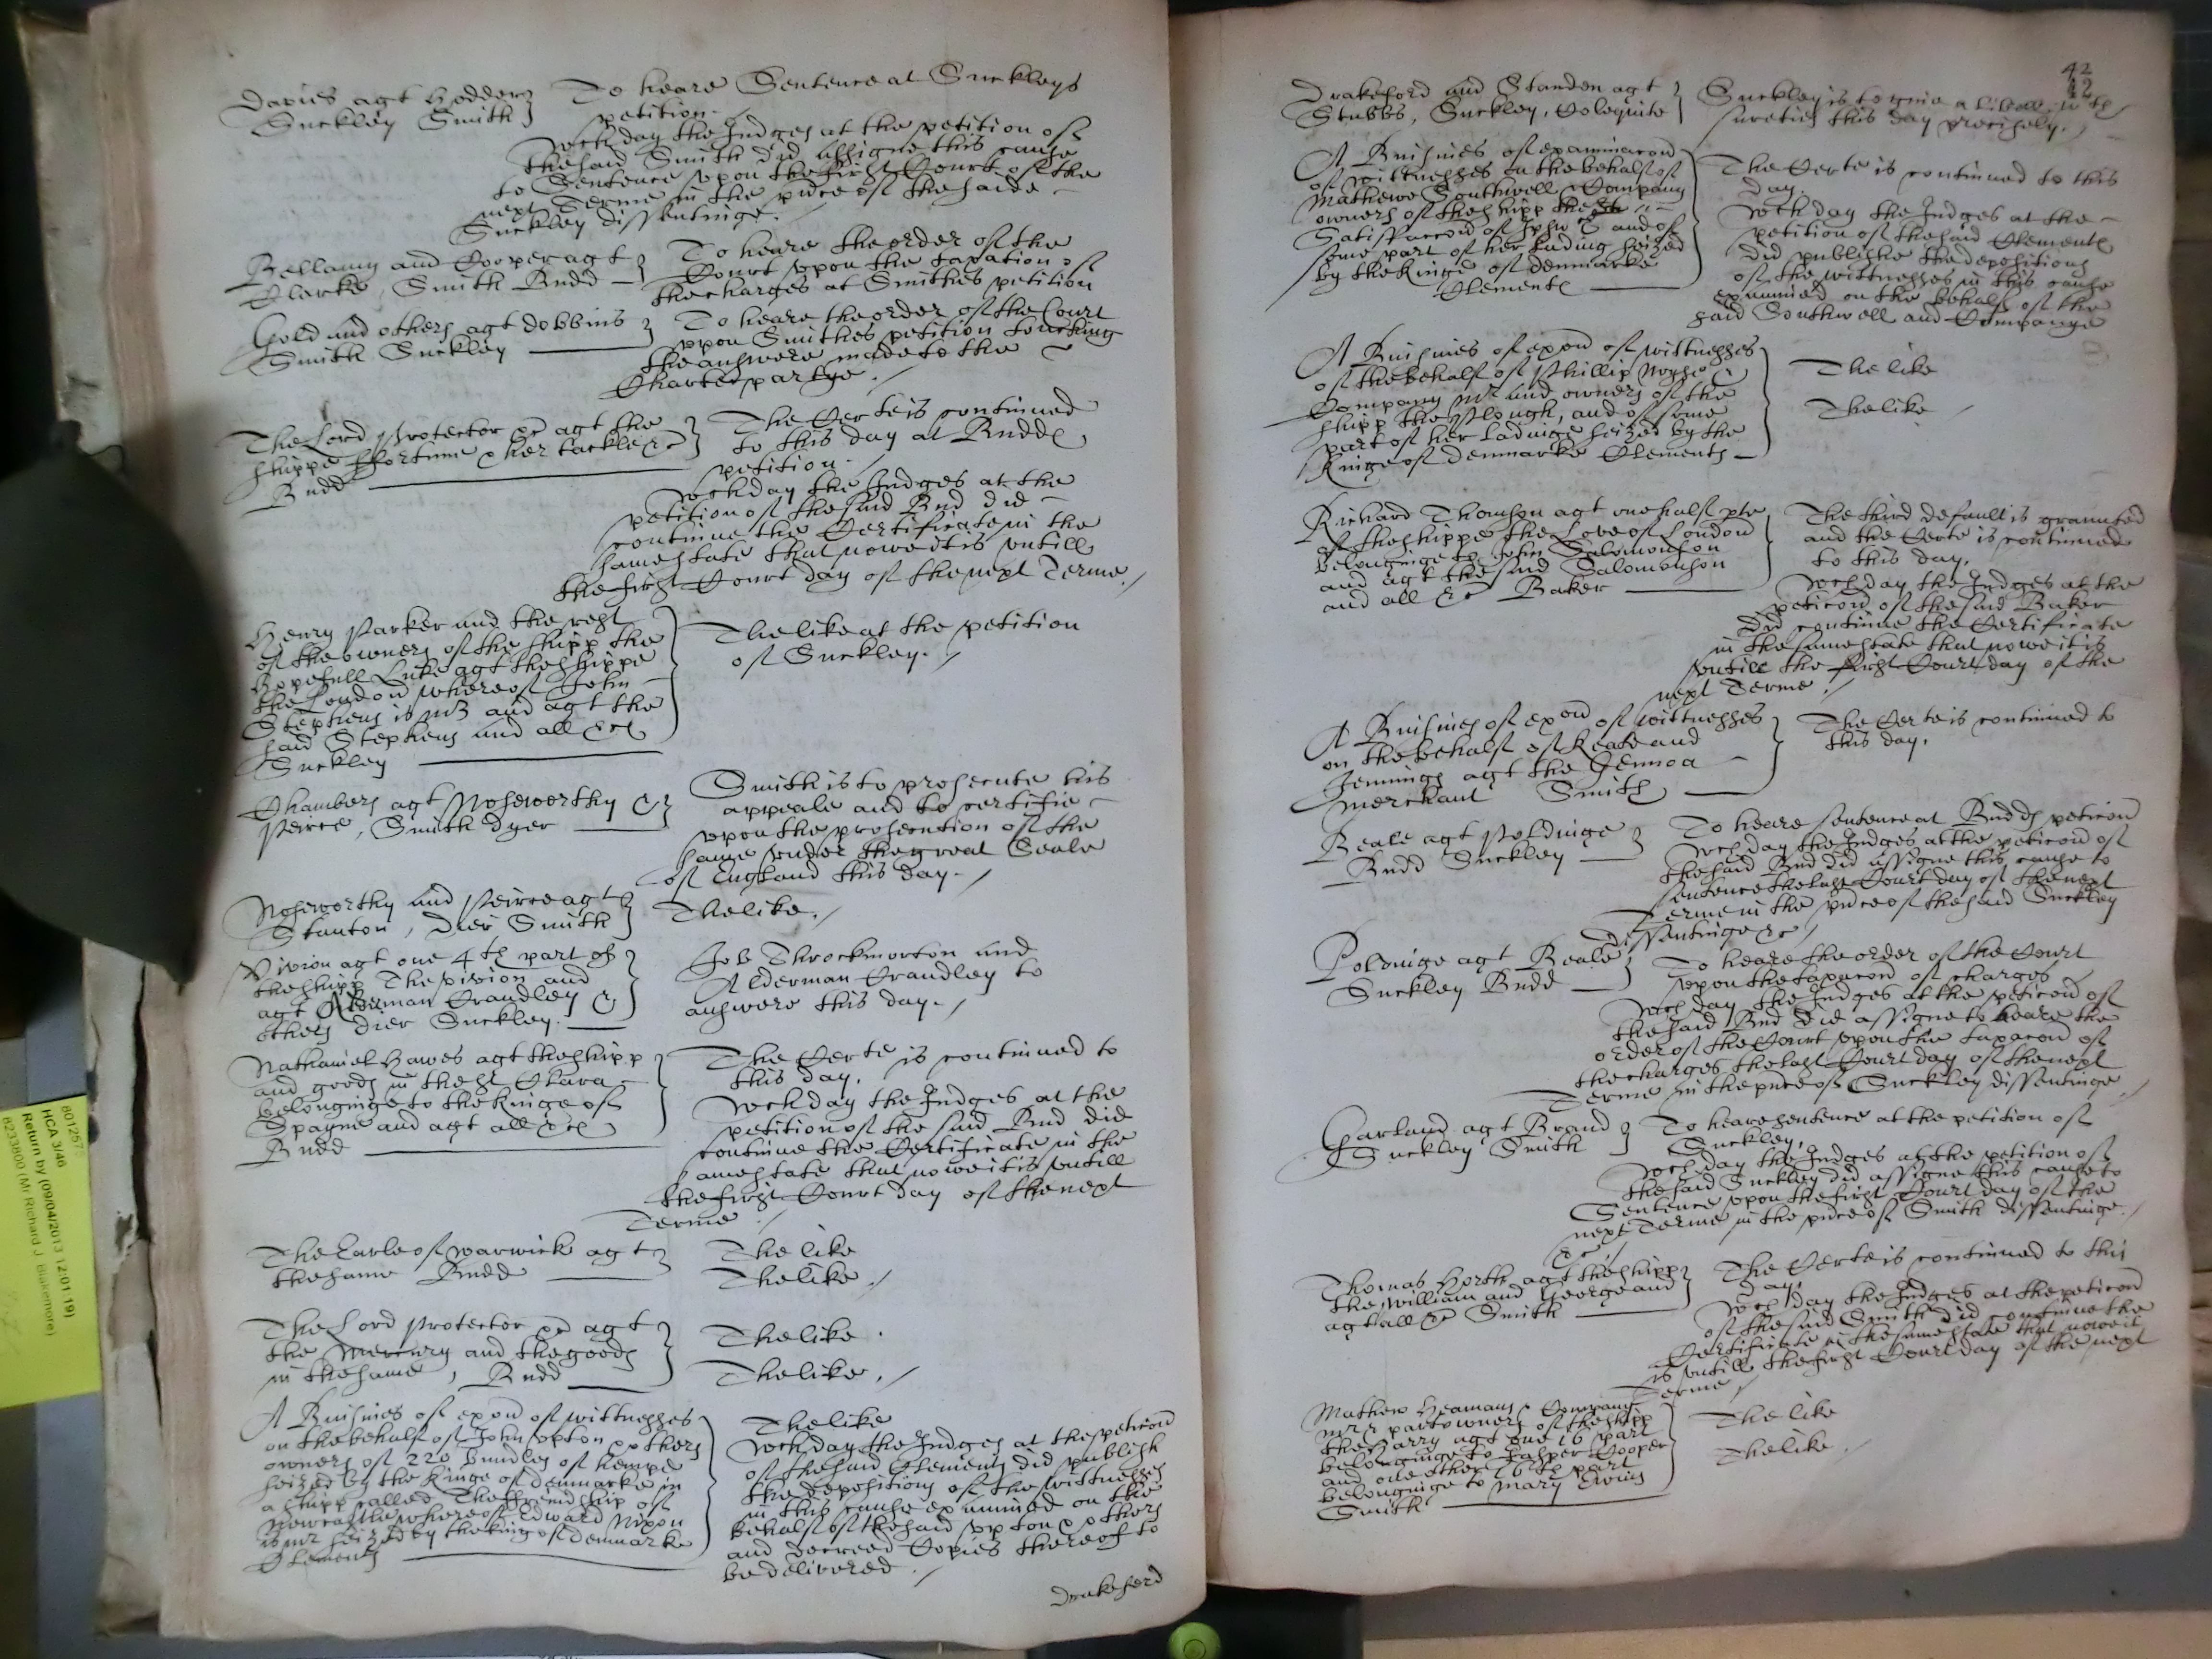 Davies agt Hedder
Suckley Smith
To heare Sentence at Suckleys
petition.
wch day the Judges at the petition of
the said Smith did assigne this cause
to Sentence upon the first Court of the
next Terme in the pnce of the saide
Suckley dissentinge.
Bellamy and Cooper agt
Clarke, Smith Budd
To heare the order of the
Court upon the taxation of
the charges at Smithes petition
Gold and others agt dobbins
Smith Suckley
To heare the order of the Court
upon Smithes petition touching
the answere made to the
Charterpartye.
The Lord Protector &c agt the
shippe ffortune & her tackle &c
Budd
The Certe is continued
to this day at Budds
petition.
wch day the Judges at the
petition of the said Bud did
continue the Certificate in the
same state that nowe it is untill
the first Court day of the next Terme.
Henry Parker and the rest
of the owners of the shipp the
Hopefull Luke agt the shippe
the London whereof John
Stephens is mr and agt the
said Stephens and all &c
Suckley
The like at the petition
of Suckley.
Chambers agt Noseworthy &
Peirce, Smith dyer
Smith is to prosecute his
appeale and to certifie
upon the prosecution of the
same under the great Seale
of England this day.
Noseworthy and Peirce agt
Stanton, Dier Smith
The like.
Vivion agt one 4th part of
the shipp The Vivion and
agt Alderman Crandley &
others dier Suckley.
Job Throckmorton and
Alderman Crandley to
answere this day.
Nathaniel Hawes agt the shipp
and goods in the St Clara
belonginge to the Kinge of
Spayne and agt all &c
Budd
The Certe is continued to
this day.
wch day the Judges at the
petition of the said Bud did
continue the Certificate in the
same state that nowe it is untill
the first Court day of the next
Terme
The Earle of Warwick agt
the same Budd
The like
The like.
The Lord Protector &c agt
the Mercury and the goods
in the same, Budd
The like.
The like.
A Busines of exon of wittnesses
on the behalf of John Upton & others
owners of 220 bundles of hempe
seized by the Kinge of denmarke in
a shipp called The ffreindship of
Newcastle whereof Edward Nixon
is mr seized by the king of denmarke
Clements
The like
wch day the Judges at the peticon
of the said Clements did publish
the depositions of the wittnesses
in this cause examined on the
behalf of the said Upton & others
and decreed Copies thereof to
be delivered.
Drakeford
42
42
Drakeford and Standen agt
Stubbs, Suckley, Colequite
Suckley is to give a libell with
sureties this day precisely.
A Busines of examinacon
of wittnesses on the behalf of
Mathewe Southwell & Company
owners of the shipp the
Satisfaccon of and of
some part of her lading seized
by the Kinge of denmarke
Clements
The Certe is continued to this
day.
wch day the Judges at the
petition of the said Clements
did publishe the depositions
of the wittnesses in this cause
examined on the behalf of the
said Southwell and Companye
A Busines of exon of wittnesses
of the behalf of Phillip &
Company mr and owners of the
shipp the Plough, and of some
part of her ladinge seized by the
Kinge of denmarke Clements
The like
The like
Richard Thomson agt one half pte
of the shippe the Love of London
belonginge to John Salomonson
and agt the said Salomonson
and all &c Baker
The third default is graunted
and the Certe is continued
to this day.
wch day the Judges at the
peticon of the said Baker
did continue the Certificate
in the same state that nowe it is
untill the first Court day of the
next Terme.
A Busines of exon of wittnesses
on the behalf of Keate and
Jennings agt the Gennoa
merchant Smith
The Certe is continued to
this day.
Beale agt Poldinge
Budd Suckley
To heare sentence at Budds peticon
wch day the Judges at the peticon of
the said Bud did assigne this cause to
sentence the last Court day of the next
Terme in the pnce of the said Suckley
dissentinge &c
Poldinge agt Beale
Suckley Budd
To heare the order of the Court
upon the taxacon of charges
wch day the Judges at the peticon of
the said Bud did assigne to heare the
order of the Court upon the taxacon of
the charges the last Court day of the next
Terme in the pnce of Suckley dissentinge
Garland agt Brand
Suckley Smith
To heare sentence at the petition of
Suckley,
wch day the Judges at the petition of
the said Suckley did assigne this cause to
Sentence upon the first Court day of the
next Terme in the pnce of Smith dissentinge.
&c
Thomas North agt the shipp
the William and George and
agt all &c Smith
The Certe is continued to this
day.
wch day the Judges at the peticon
of the said Smith did continue the
Certificate in the same state that nowe it
is untill the first Court day of the next
Terme
Mathew Heaman & Company
mr & partowners of the shipp
the Parry agt one 16 part
belonginge to Jasper Cooper
and one other 16th part
belonginge to Mary Ewins
Smith
The like
The like.
801257
HCA 3/46
Return by (09/04/2013 12:01:19)
8233800 (Mr Richard J Blakemore)